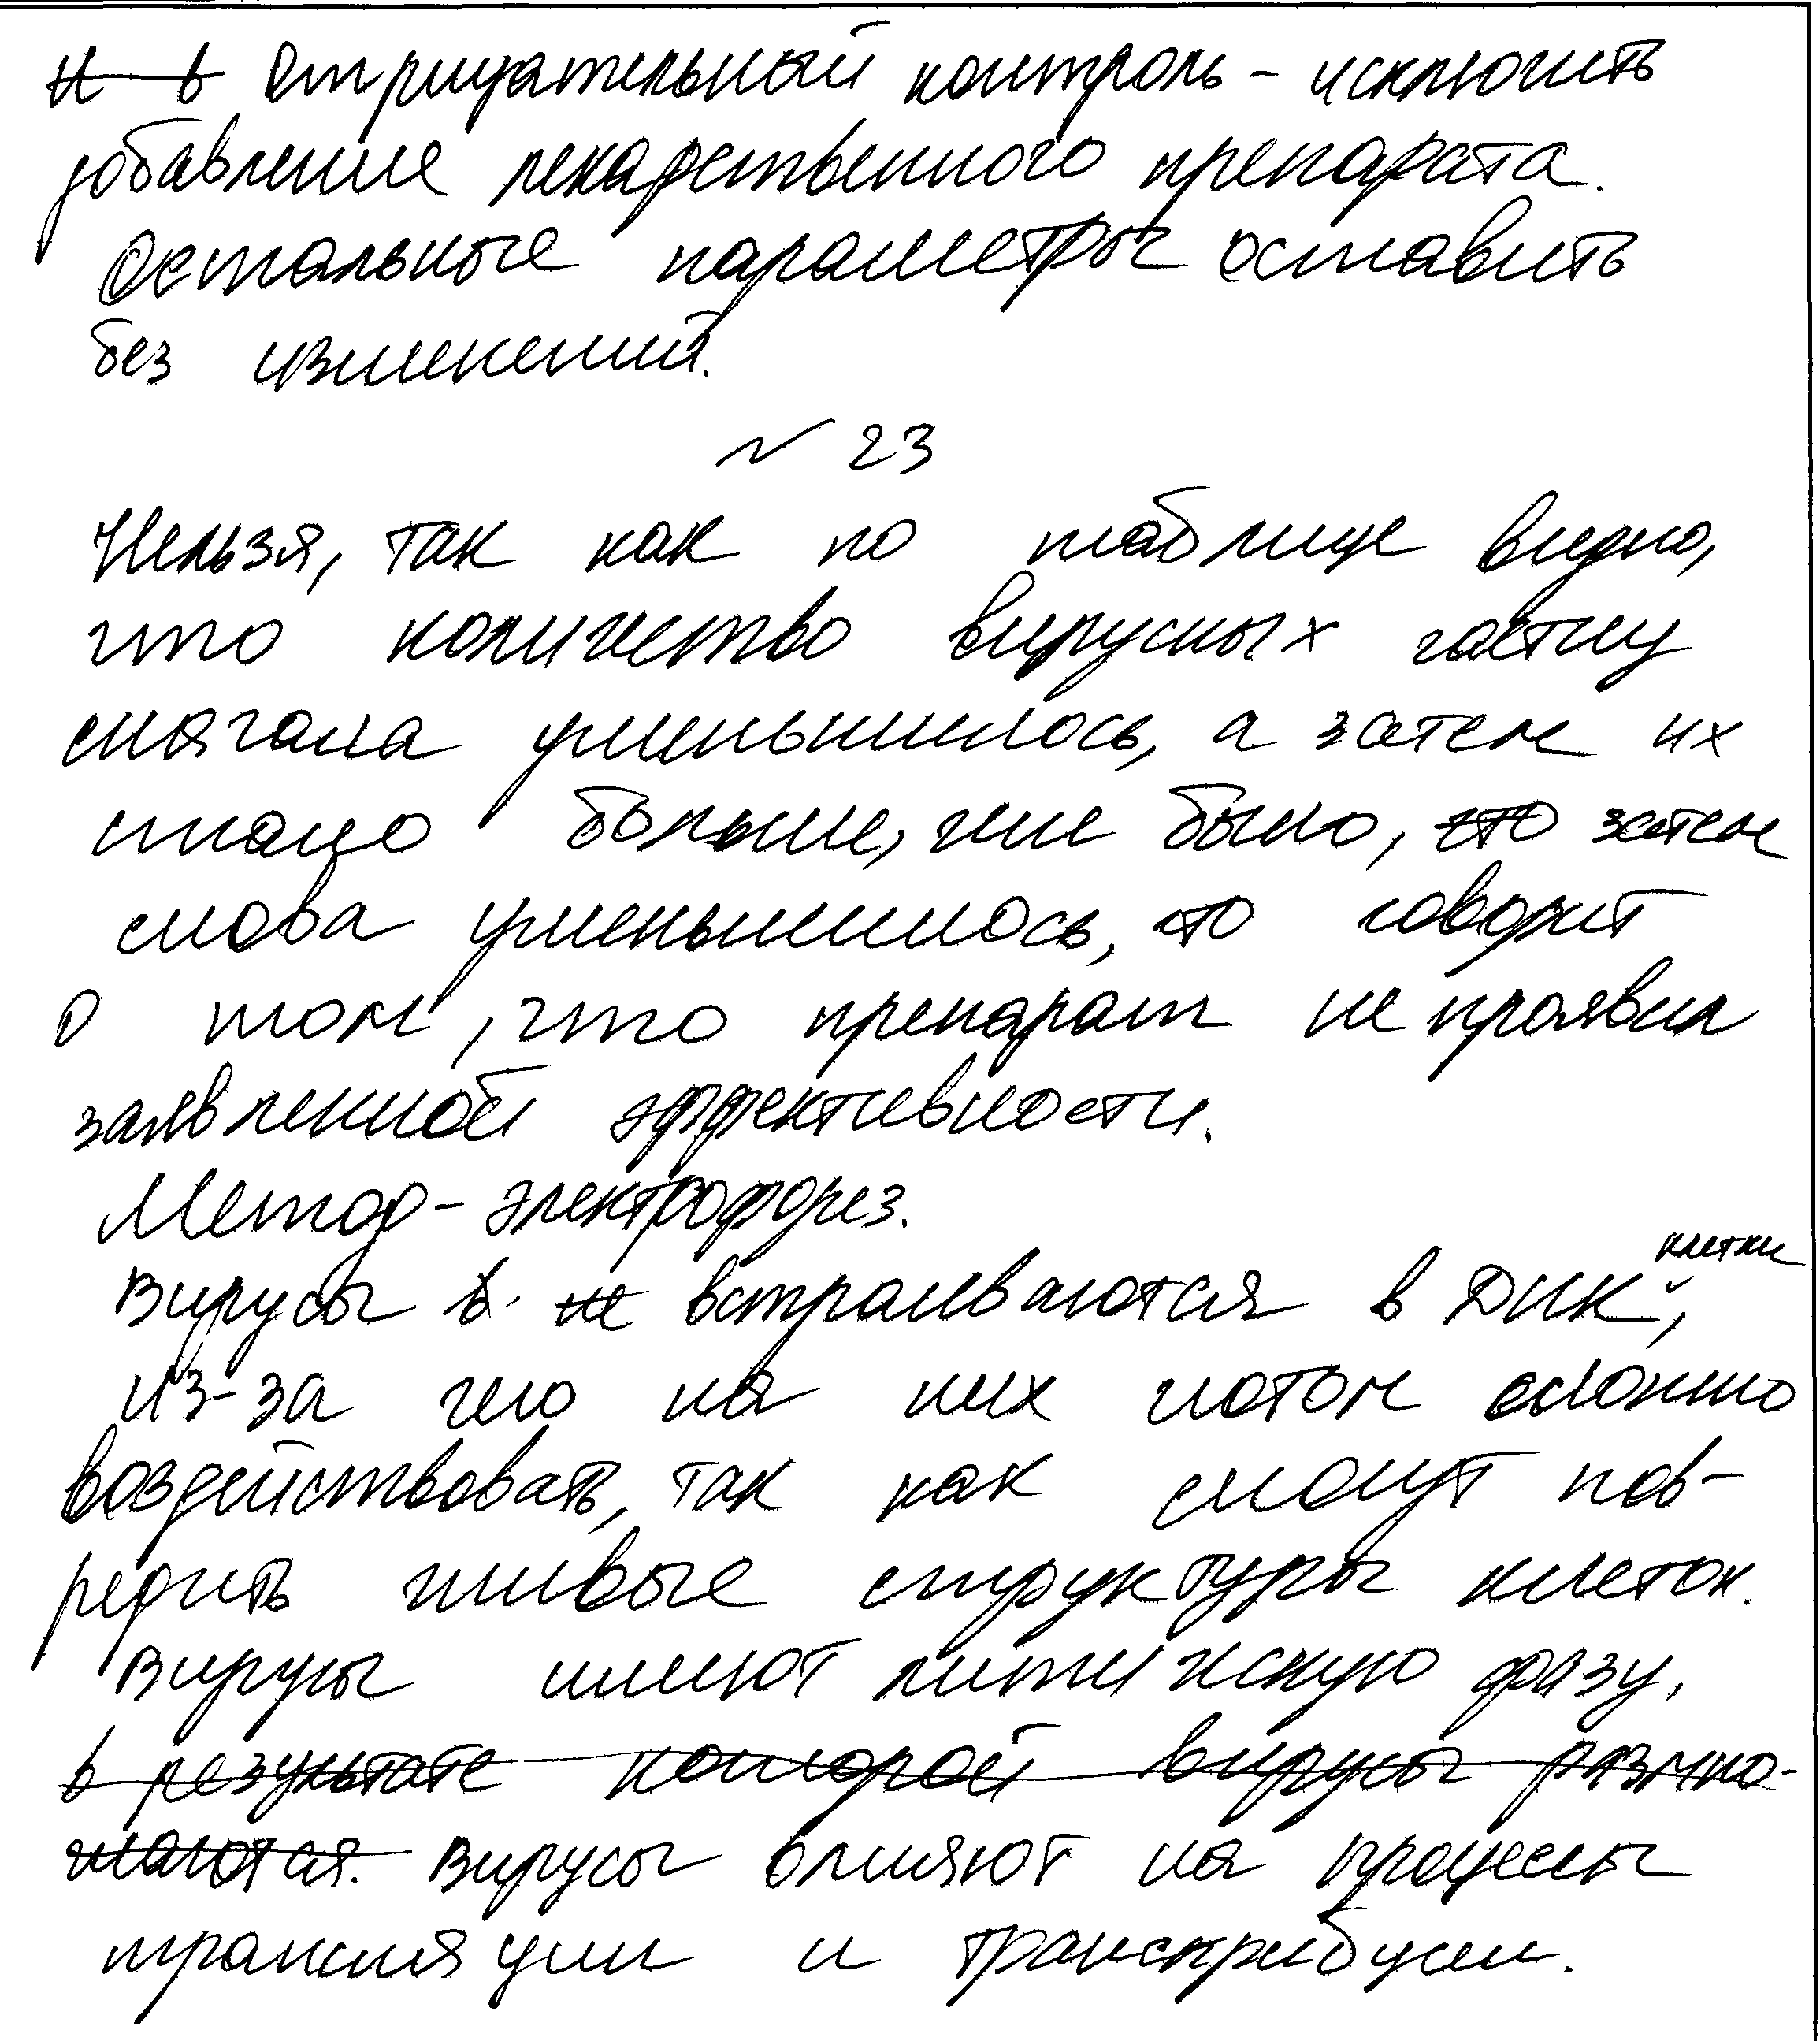 Н в Отрицательный контроль - исключить
добавление лекарственного препарата.
Остальные параметры оставить
без изменений.
№ 23
Нельзя, так как по таблице видно,
что количество вирусных частиц
сначала уменьшилось, а затем их
стало больше, чем было, это затем
снова уменьшилось, это говорит
о том, что препарат не проявил
заявленной эффективности.
Метод - электрофорез.
Вирусы в не встраиваются в ДНК клетки,
из-за чего на них потом сложно
воздействовать, так как смогут пов-
редить живые структуры клеток.
Вирусы имеют литическую фазу,
в результате которой вирусы размно-
жаются. Вирусы влияют на процессы
трансляции и транскрибции.